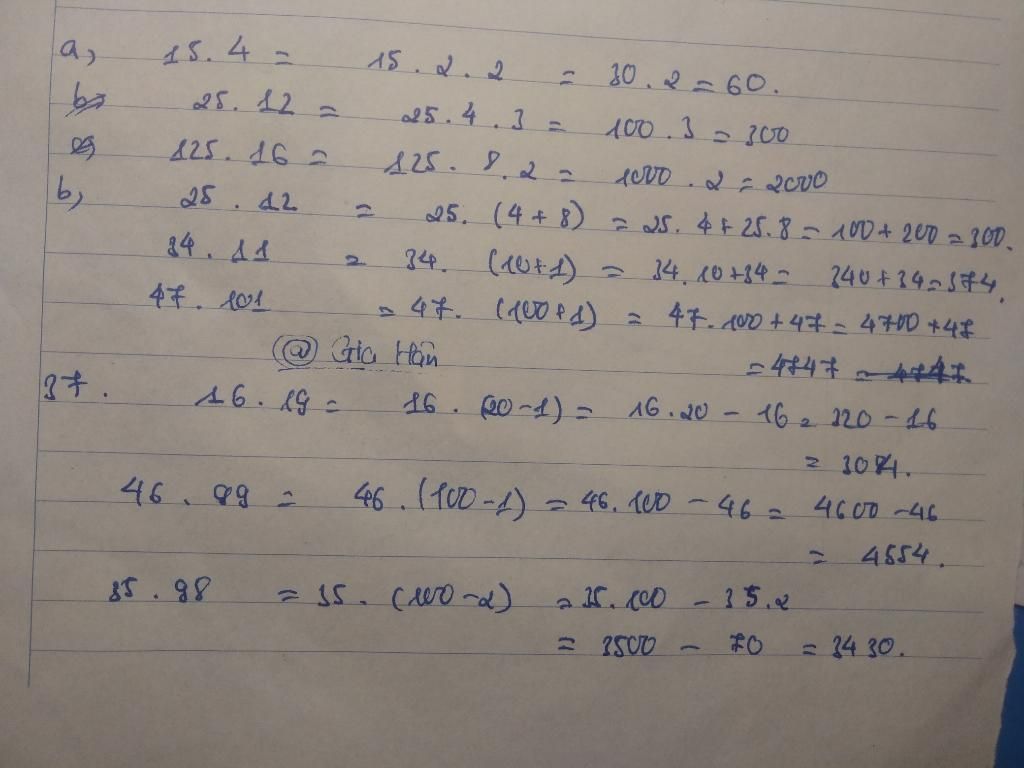 a, 15 . 4 = 15 . 2 . 2 = 30 . 2 = 60.
25 . 12 = 25 . 4 . 3 = 100 . 3 = 300
125 . 16 = 125 . 8 . 2 = 1000 . 2 = 2000
b, 25 . 12 = 25. (4 + 8) = 25. 4 + 25. 8 = 100 + 200 = 300.
34 . 11 = 34. (10 + 1) = 34. 10 + 34 = 340 + 34 = 374.
47 . 101 = 47. (100 + 1) = 47. 100 + 47 = 4700 + 47
@ Gia Hân = 4747
37. 16 . 19 = 16 . (20 - 1) = 16 . 20 - 16 = 320 - 16
= 304.
46 . 99 = 46 . (100 - 1) = 46. 100 - 46 = 4600 - 46
= 4554.
35 . 98 = 35 . (100 - 2) = 35. 100 - 35. 2
= 3500 - 70 = 3430.